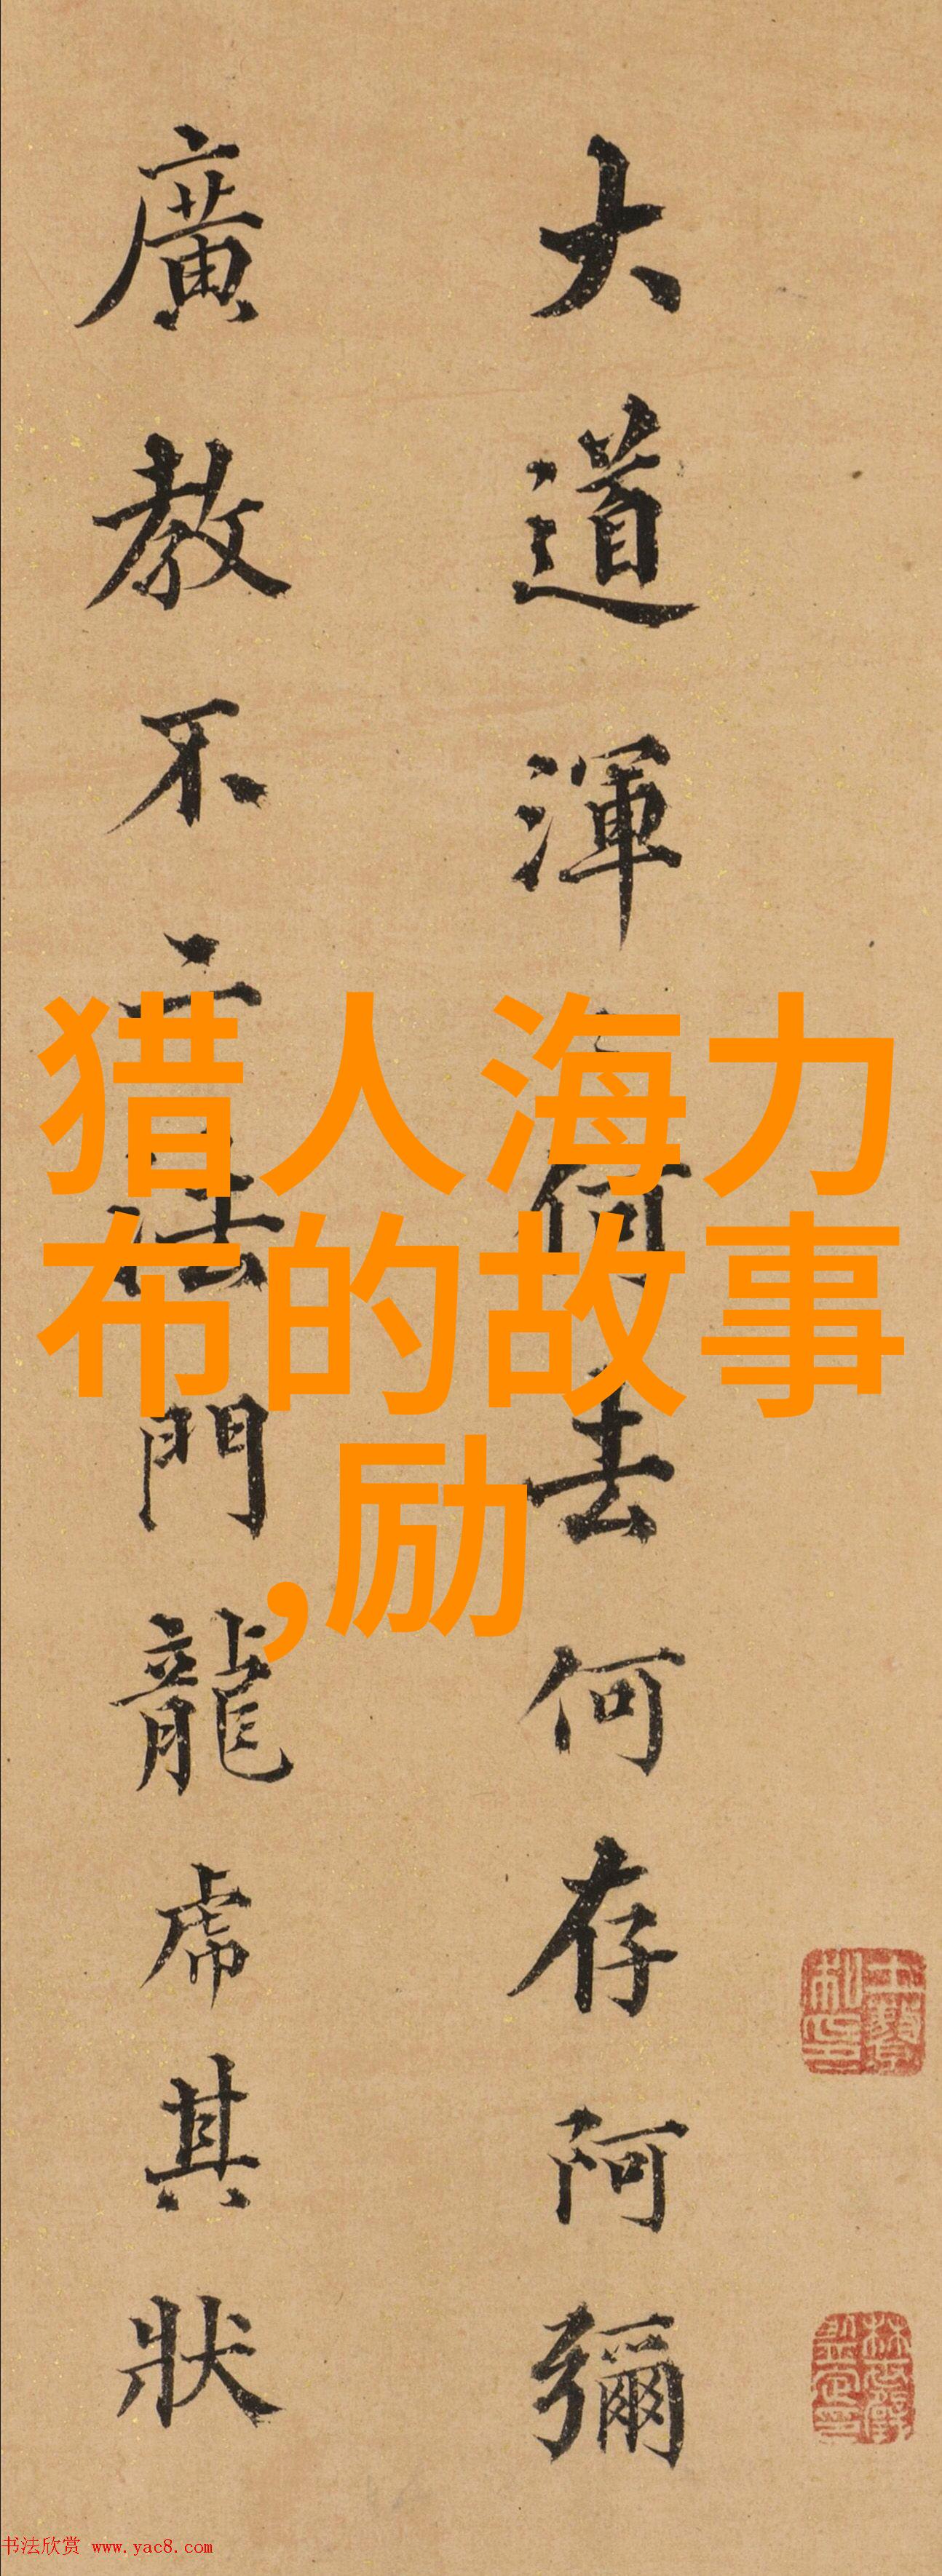 大道渾何去何存阿彌
廣教不二法門龍虎其狀
猎人海力
布的故事
,励
书法欣赏 www.yac8.com